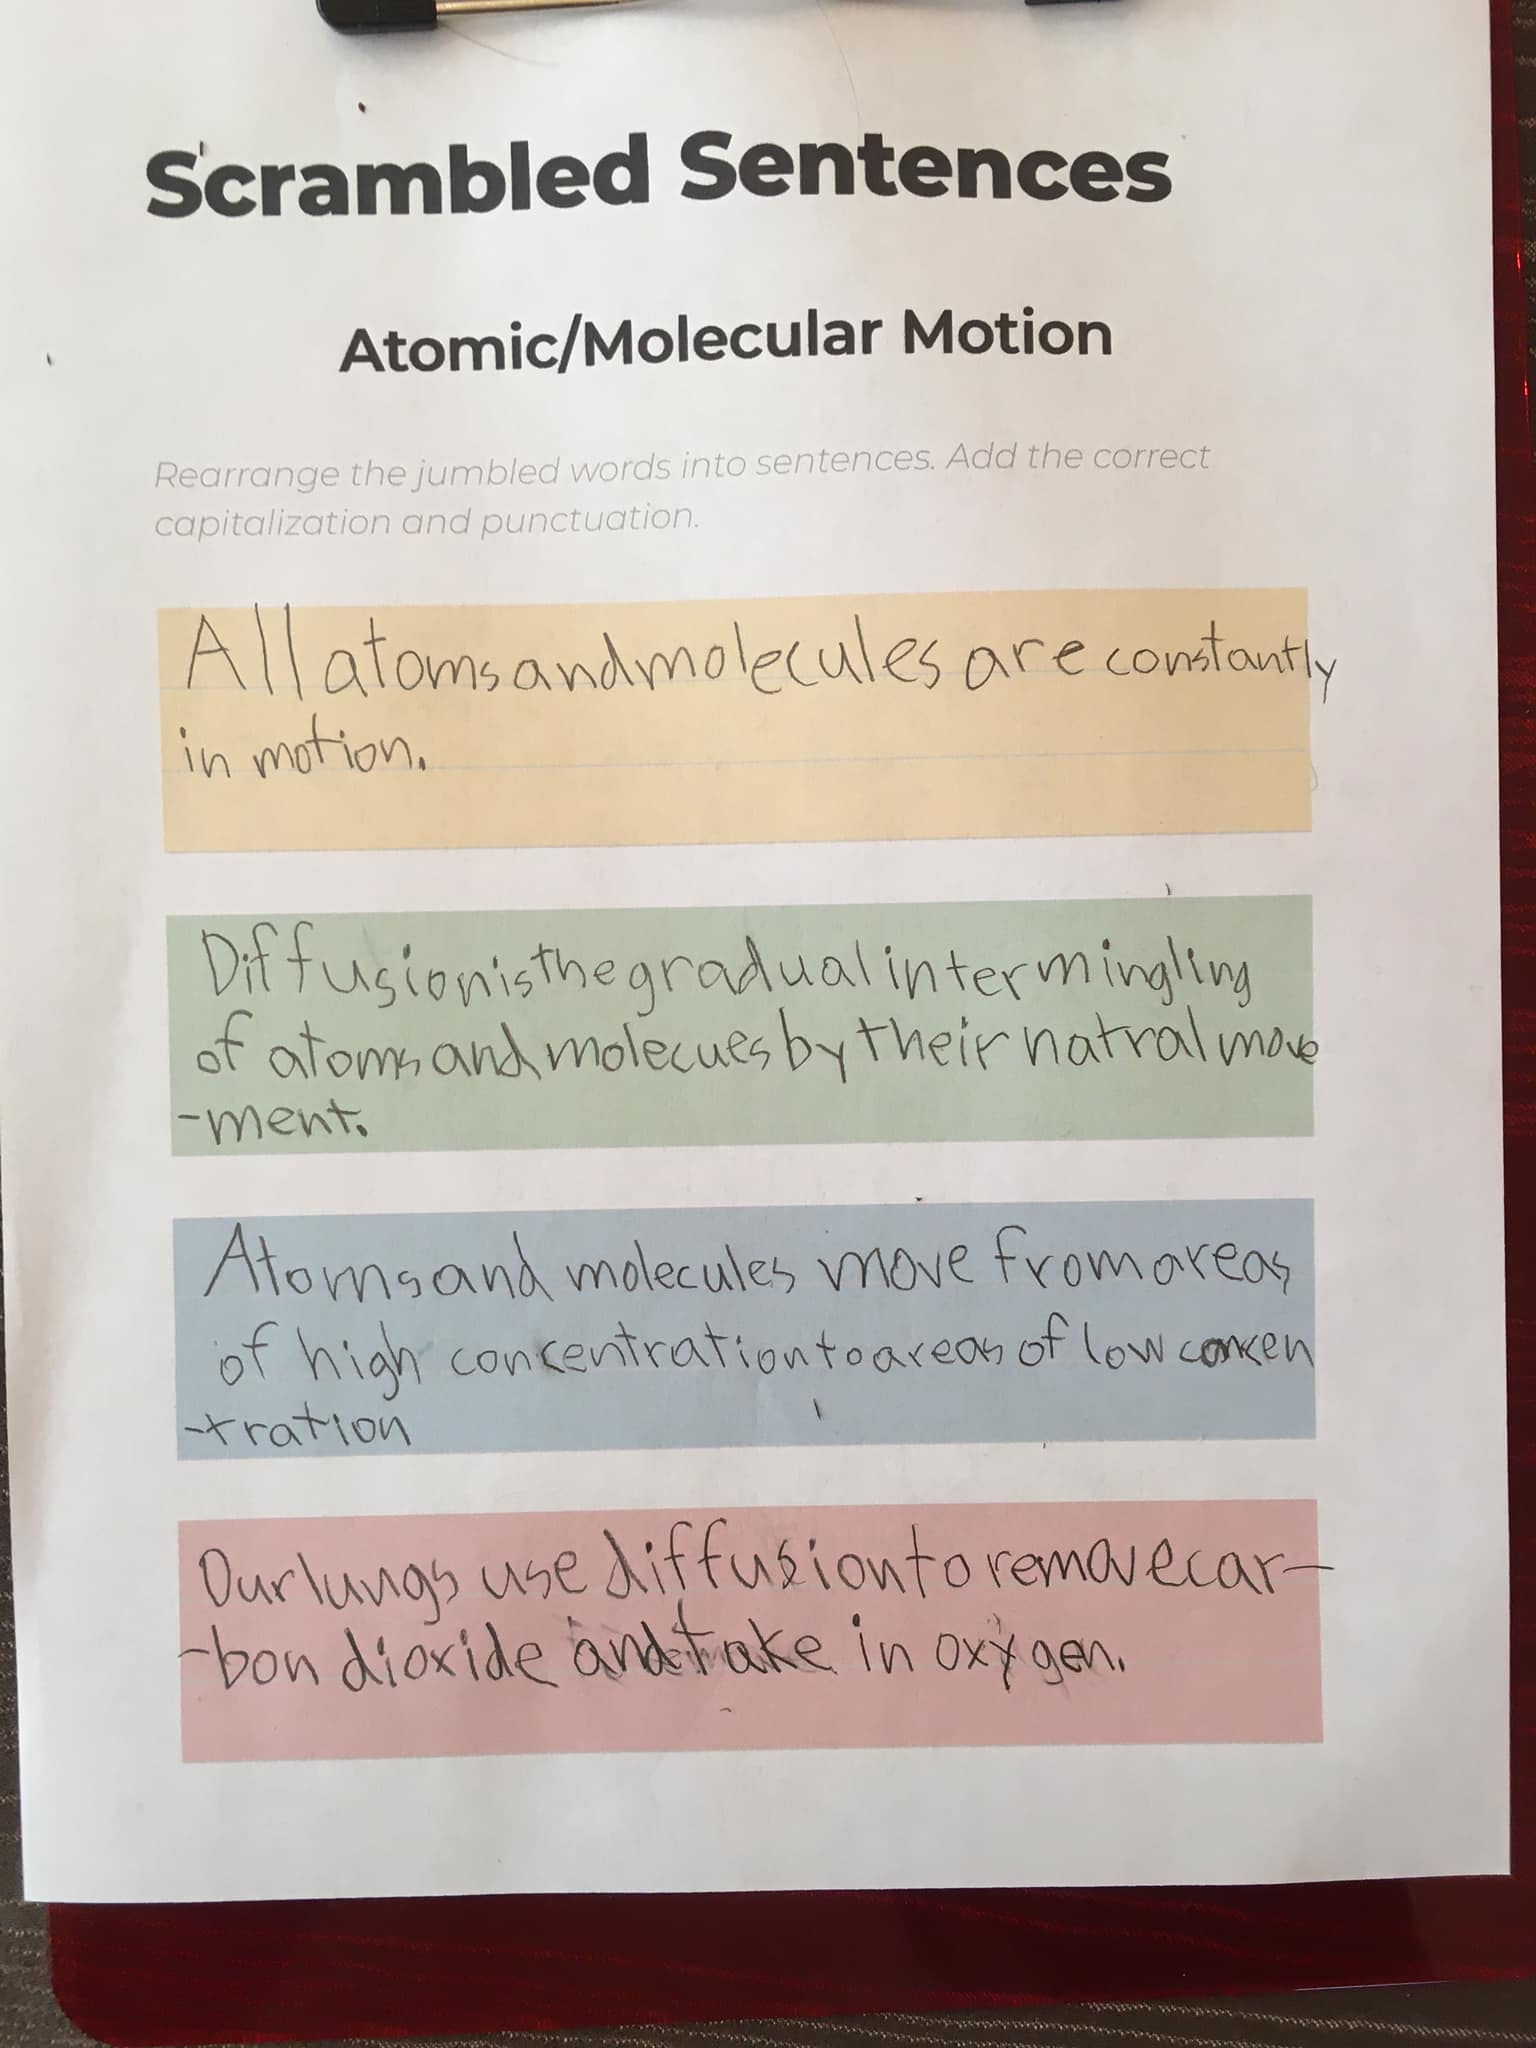 Scrambled Sentences
Atomic/Molecular Motion
Rearrange the jumbled words into sentences. Add the correct
capitalization and punctuation.
All atoms and molecules are constantly
in motion.
Diffusion is the gradual intermingling
of atoms and molecues by their natral move
-ment.
Atoms and molecules move from areas
of high concentration to areas of low concen
-tration
Our lungs use diffusion to remove car-
-bon dioxide and take in oxygen.